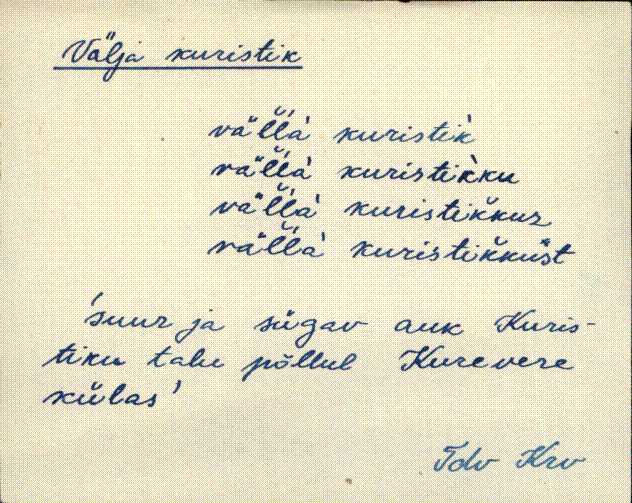 Välja kuristik
väl̆l̆à kuristik̀
väl̆l̆à kuristik̀ku
väl̆l̆à kuristik̆kuz
väl̆l̆à kuristik̆kust
'suur ja sügav auk Kuris-
tiku talu põllul Kurevere
külas'
Tdv Krv